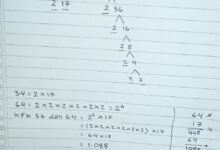 2 17
2 36
2 8
2 4
34 = 2 × 17
64 = 2 × 2 × 2 × 2 × 2 × 2 = 2⁶
KPK 36 dan 64 = 2⁶ × 17
= (2 × 2 × 2 × 2 × 2 × 2) × 17
= 64 × 17
= 1.088
64
17 ×
448
64 +
1088